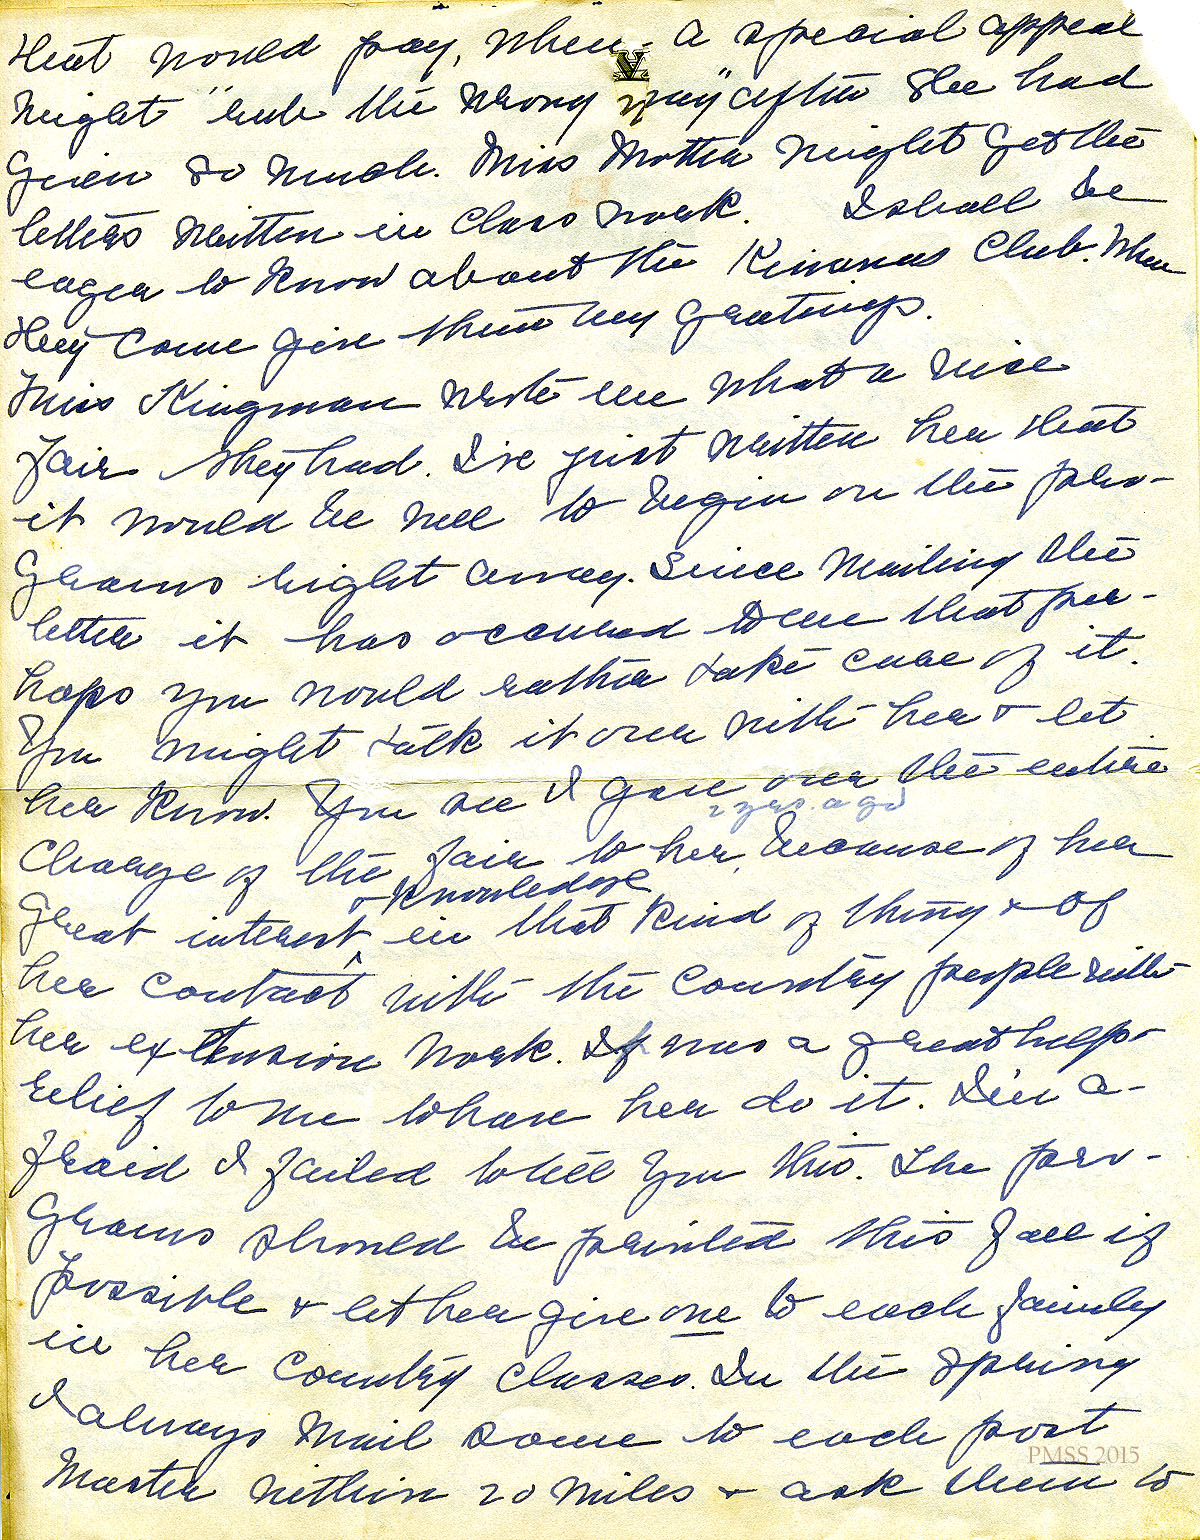 that would pay, when a special appeal
might "rub the wrong way" after she had
given so much. Miss Motter might get the
letters written in class work. I shall be
eager to know about the Kiwanas Club. When
they come give them my greetings.
Miss Kingman wrote me what a nice
fair they had. I've just written her that
it would be well to begin on the pro-
grams right away. Since mailing the
letter it has occurred to me that per-
haps you would rather take care of it.
You might talk it over with her & let
her know. You see I gave over the entire
2 yrs. ago
charge of the fair to her, because of her
& knowledge
great interest in that kind of thing & of
her contact with the country people with
her extension work. It was a great help &
relief to me to have her do it. I'm a-
fraid I failed to tell you this. The pro-
grams should be printed this fall if
possible & let her give one to each family
in her country classes. In the spring
I always mail some to each post
master within 20 miles & ask them to
PMSS 2015